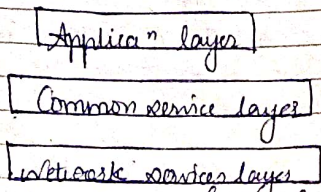 Applicaⁿ layer
Common service layer
Network services layer